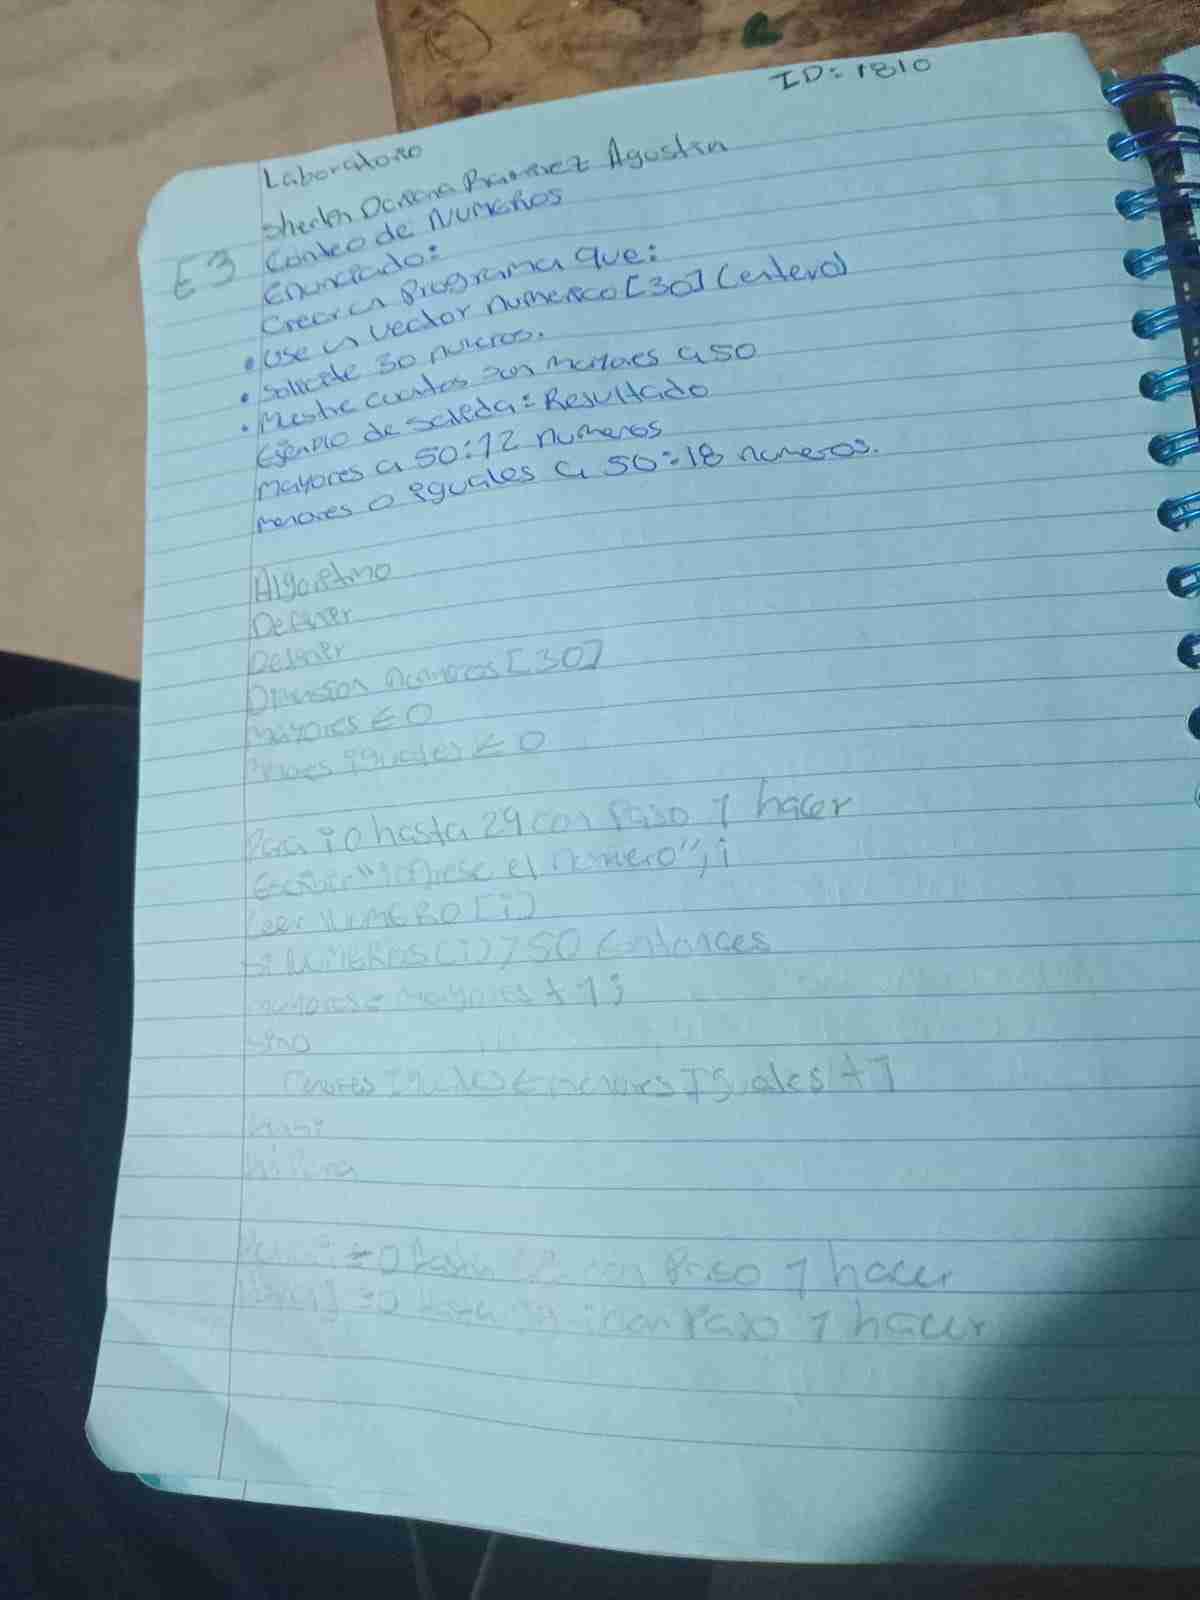 ID: 1810
Laboratorio
Ramirez Agustin
E3
Conteo de Numeros
Enunciado:
Crear un Programa que:
• Use un vector numerico [30] (entero)
• Solicite 30 numeros.
• Mestre cuantos son mayores a 50
Ejemplo de Salida: Resultado
mayores a 50: 12 numeros
menores o iguales a 50: 18 numeros.
Algoritmo
Definir
Definir
Dimension numeros [30]
Mayores ← 0
Menores iguales ← 0
Para i 0 hasta 29 con Paso 1 hacer
Escribir "ingrese el numero", i
Leer NUMERO [i]
Si NUMEROS [i] > 50 Entonces
mayores = mayores + 1;
Sino
menores Iguales ← menores Iguales + 1
= 0 hasta con Paso 1 hacer
= 0 hasta con Paso 1 hacer